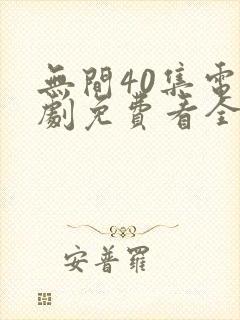 無間40集電
劇免費看全
安普羅